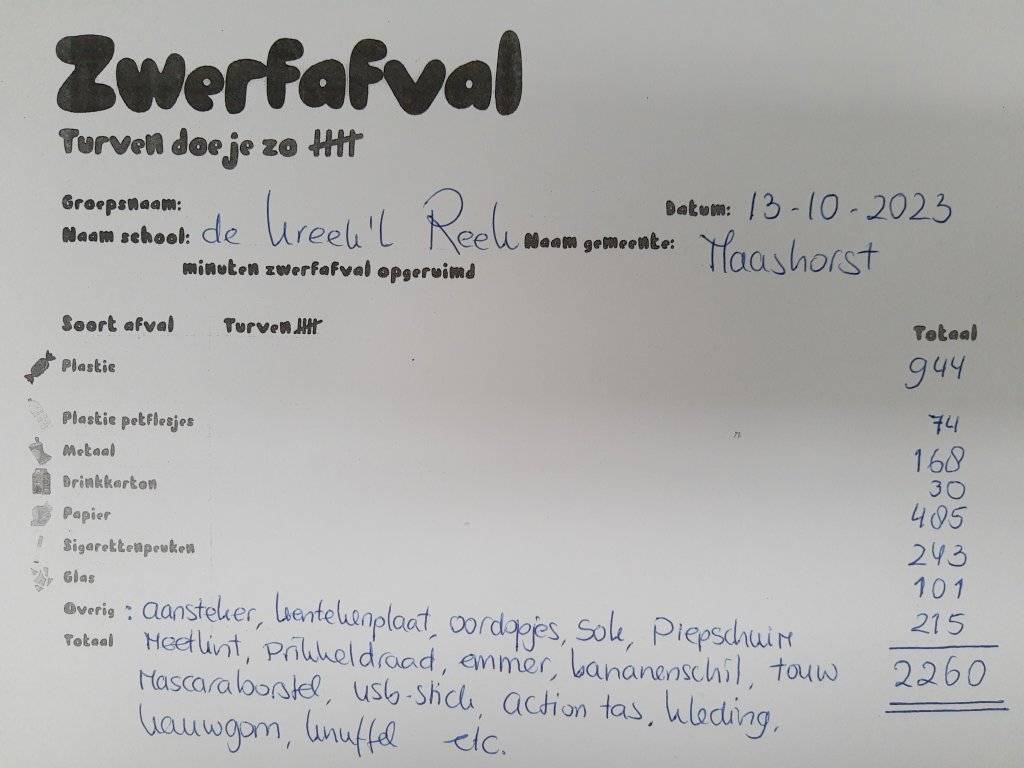 Zwerfafval
Turven doe je zo
Groepsnaam:
Datum: 13-10-2023
Naam school: de kreek'l Reek Naam gemeente: Maashorst
minuten zwerfafval opgeruimd
Soort afval Turven Totaal
Plastic 944
Plastic petflesjes 74
Metaal 168
Drinkkarton 30
Papier 485
Sigarettenpeuken 243
Glas 101
Overig : aansteker, kentekenplaat, oordopjes, sok, Piepschuim 215
Totaal Meetlint, prikkeldraad, emmer, bananenschil, touw 2260
Mascaraborstel, usb-stick, action tas, kleding,
kauwgom, knuffel etc.